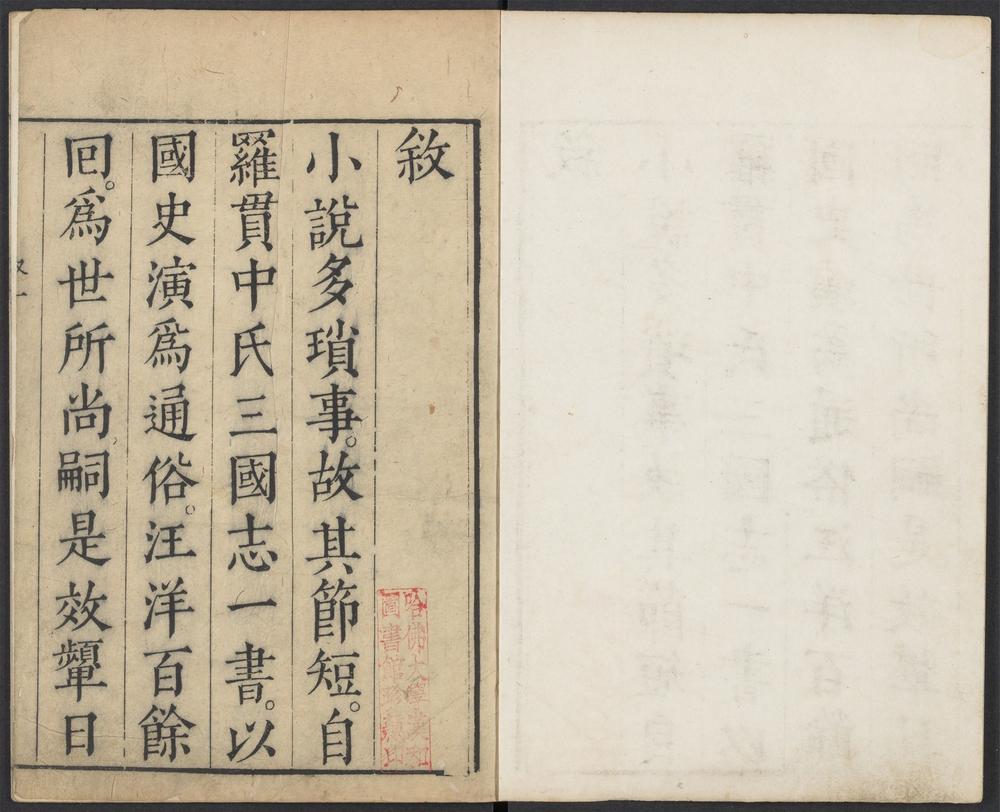 敘
小說多瑣事。故其節短。自
羅貫中氏三國志一書。以
國史演為通俗。汪洋百餘
回。為世所尚。嗣是效顰日
哈佛大學漢和
圖書館珍藏印